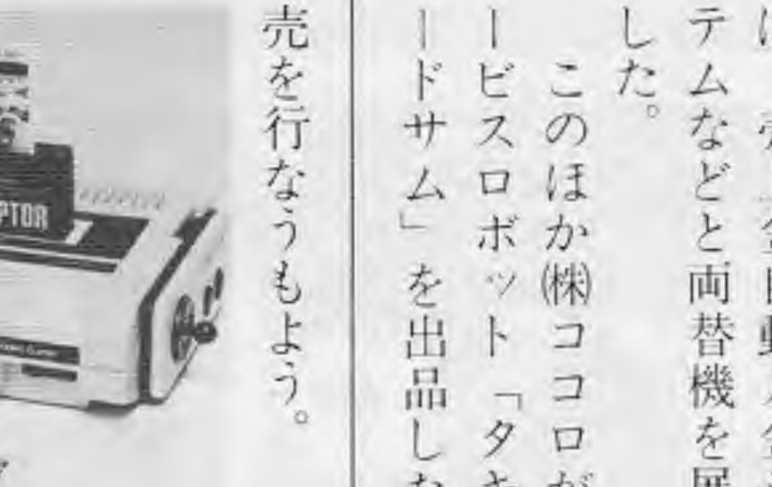 テムなどと両替機を展
した。
このほか㈱ココロが
ービスロボット「タキ
ードサム」を出品した
売を行なうもよう。
PTOR